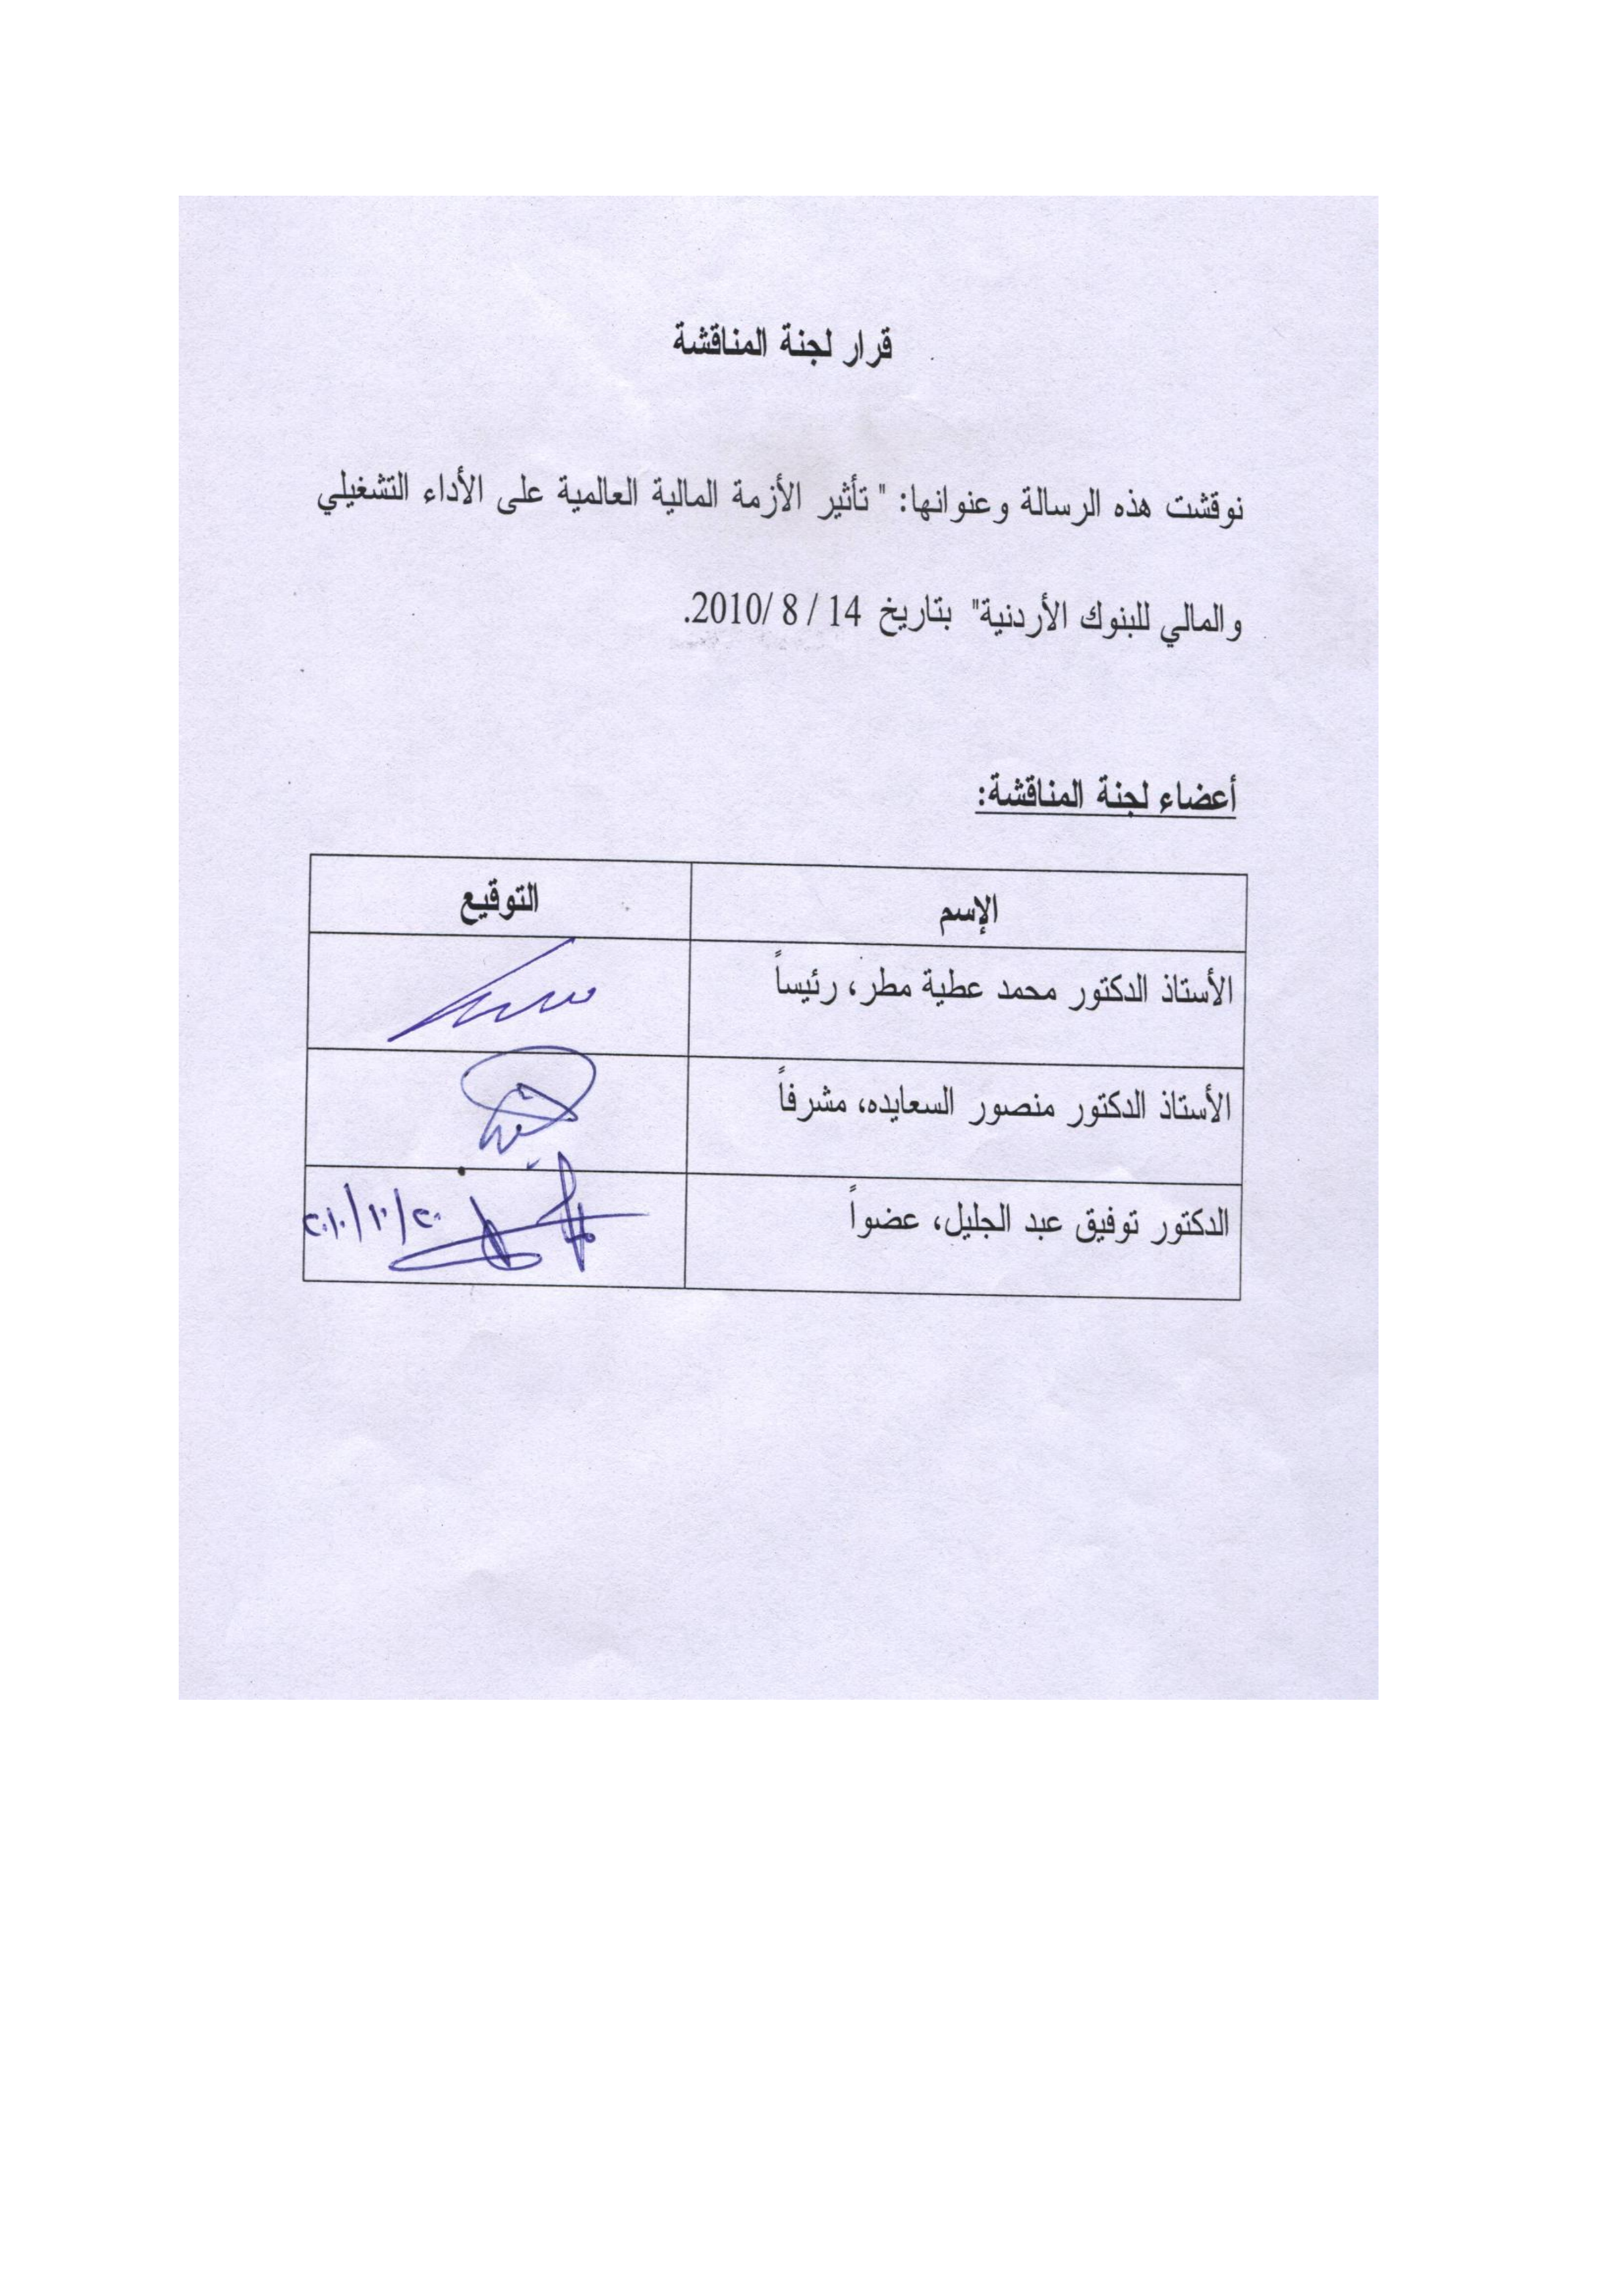 قرار لجنة المناقشة
نوقشت هذه الرسالة وعنوانها: " تأثير الأزمة المالية العالمية على الأداء التشغيلي
والمالي للبنوك الأردنية" بتاريخ 14 / 8 /2010.
أعضاء لجنة المناقشة:
الإسم التوقيع
الأستاذ الدكتور محمد عطية مطر، رئيساً
الأستاذ الدكتور منصور السعايده، مشرفاً
الدكتور توفيق عبد الجليل، عضواً ٢٠/١٠/٢٠١٠